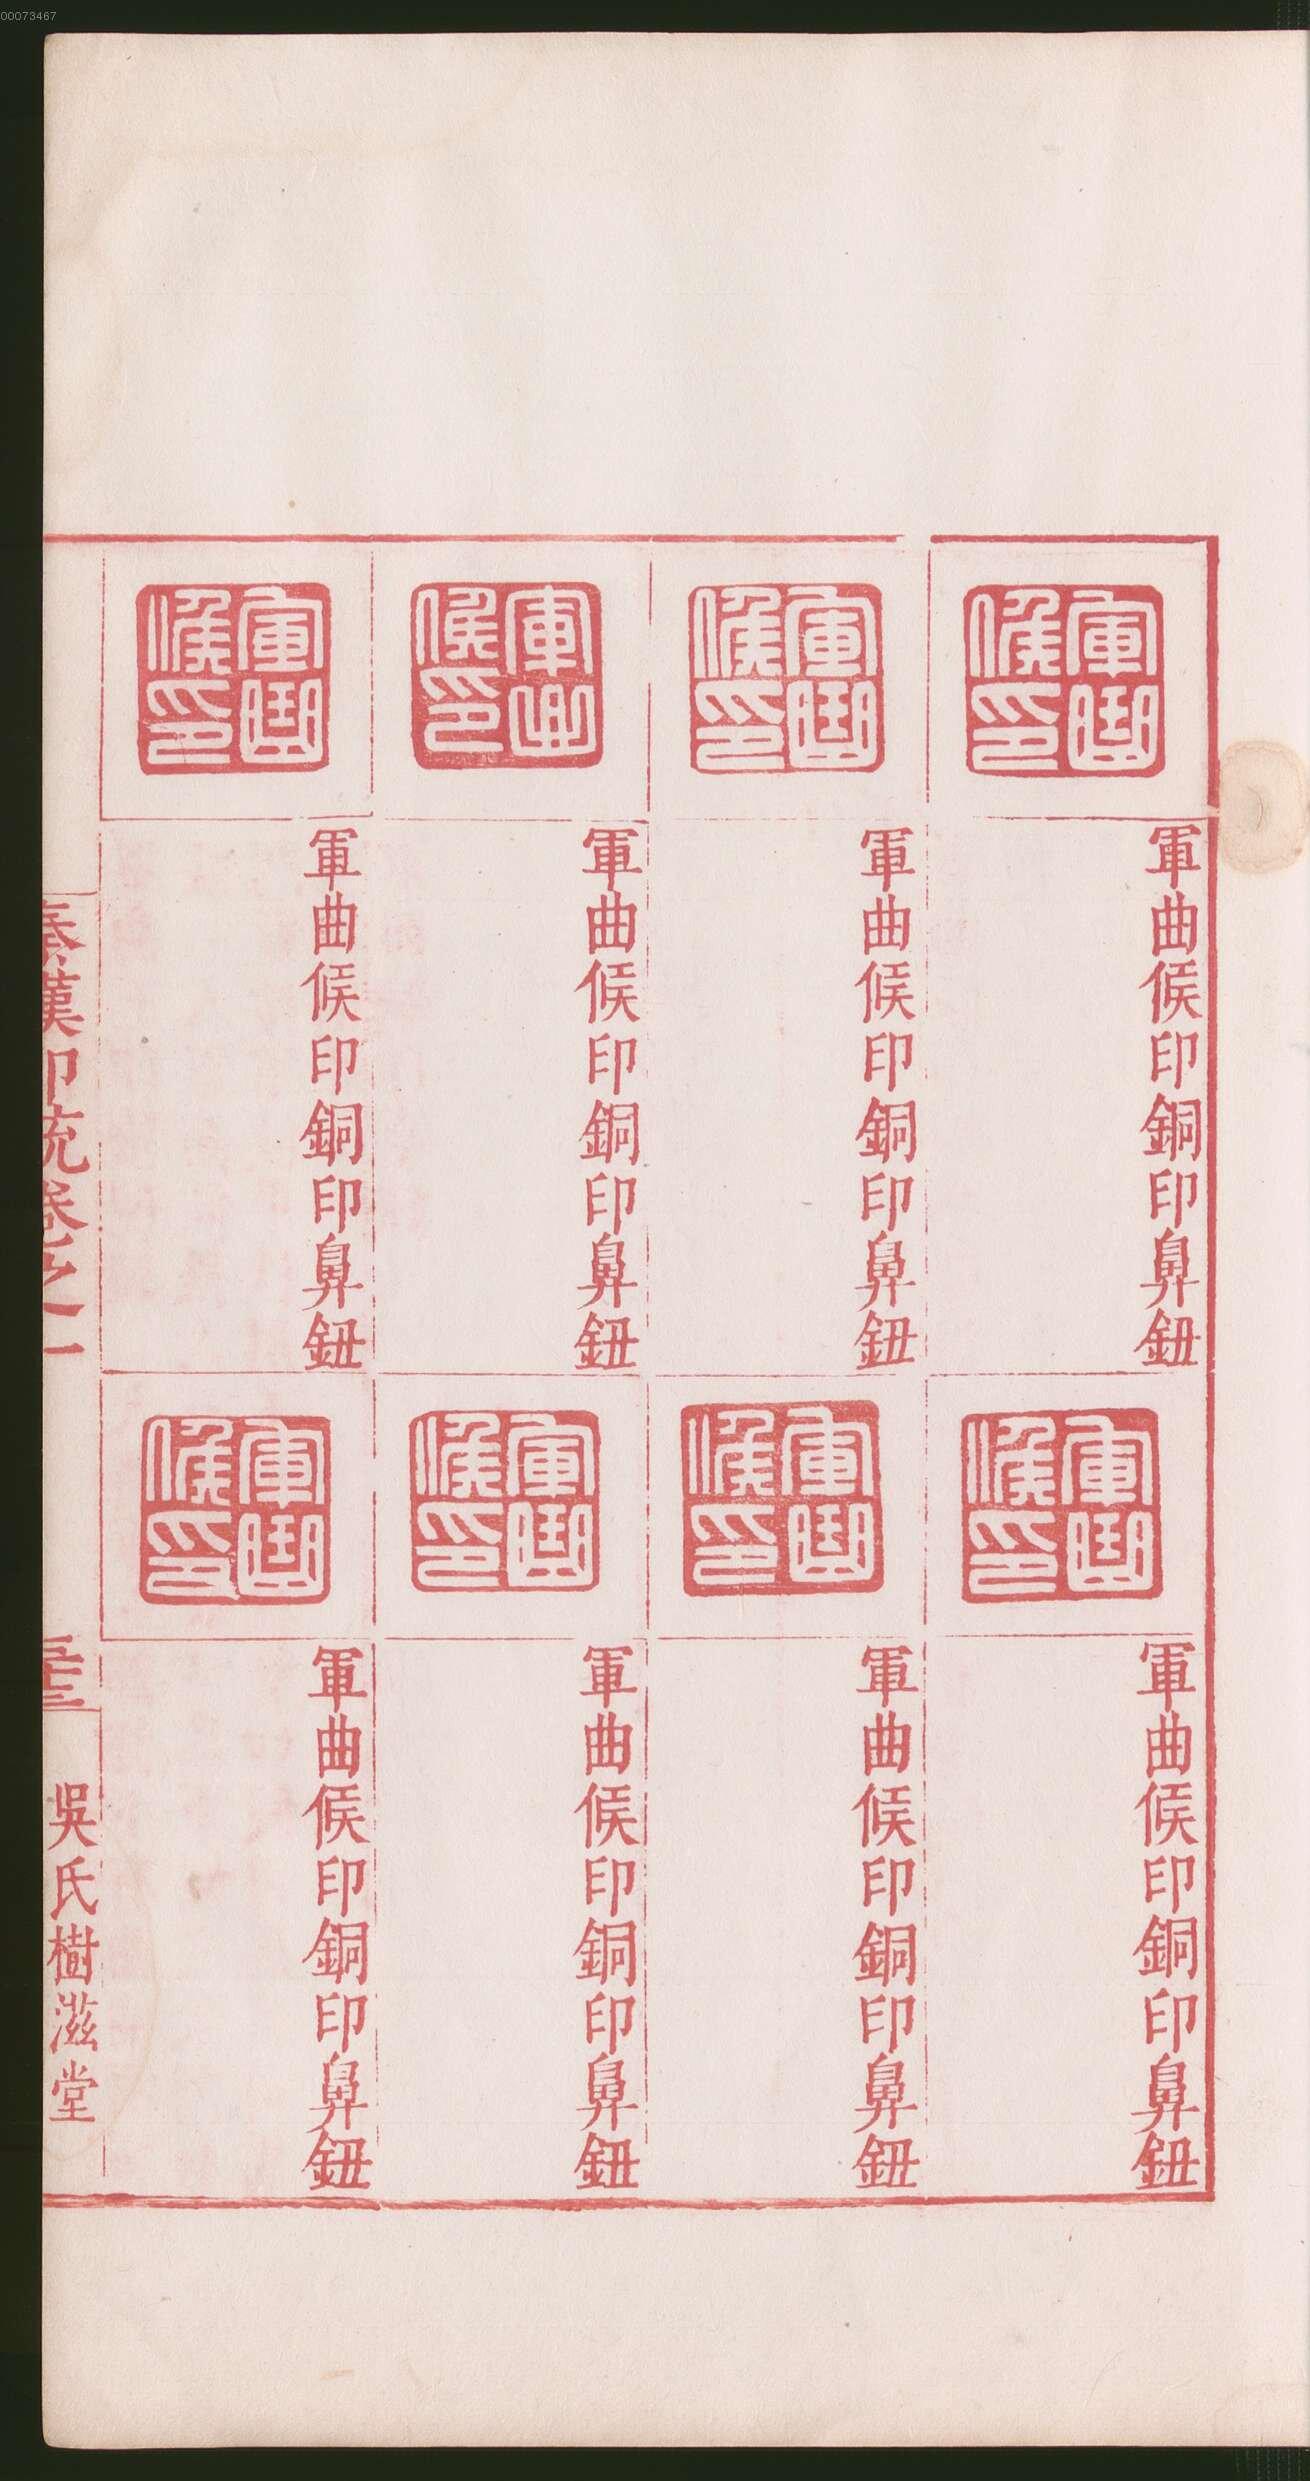 00073467
軍曲候印
軍曲候印銅印鼻鈕
軍曲候印
軍曲候印銅印鼻鈕
軍曲候印
軍曲候印銅印鼻鈕
軍曲候印
軍曲候印銅印鼻鈕
軍曲候印
軍曲候印銅印鼻鈕
軍曲候印
軍曲候印銅印鼻鈕
軍曲候印
軍曲候印銅印鼻鈕
軍曲候印
軍曲候印銅印鼻鈕
秦漢印統卷之一
吳氏樹滋堂